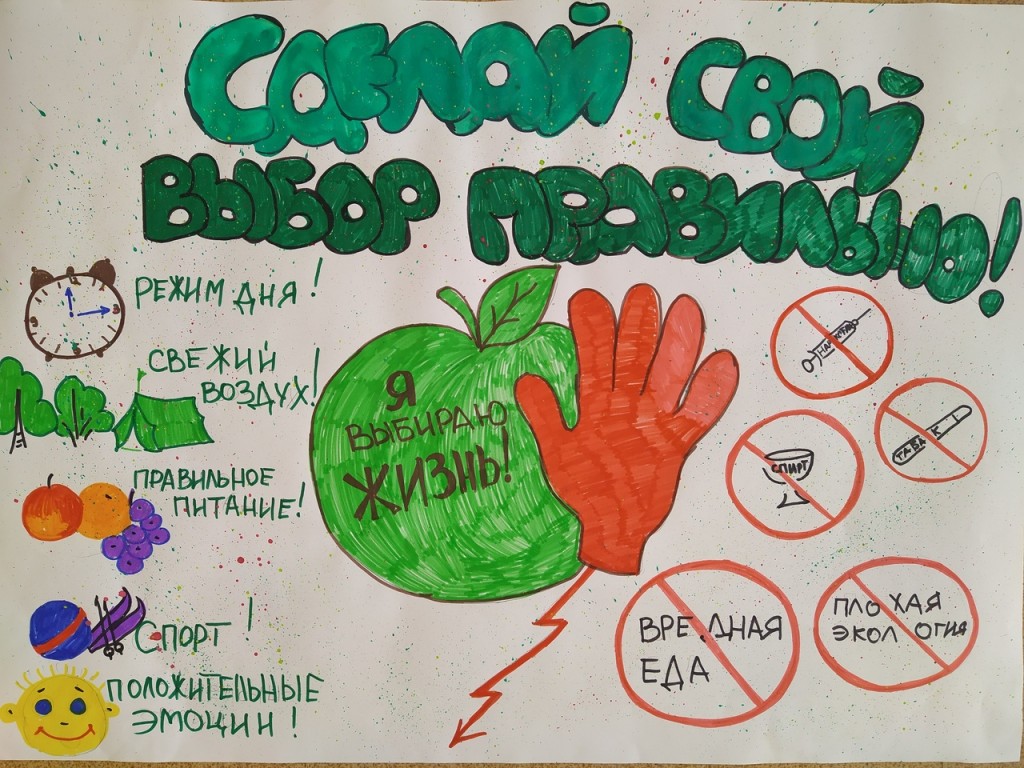 СДЕЛАЙ СВОЙ
ВЫБОР ПРАВИЛЬНО!
РЕЖИМ ДНЯ!
СВЕЖИЙ
ВОЗДУХ!
ПРАВИЛЬНОЕ
ПИТАНИЕ!
СПОРТ!
ПОЛОЖИТЕЛЬНЫЕ
ЭМОЦИИ!
Я
ВЫБИРАЮ
ЖИЗНЬ!
ТАБАК
СПИРТ
ВРЕДНАЯ
ЕДА
ПЛОХАЯ
ЭКОЛОГИЯ